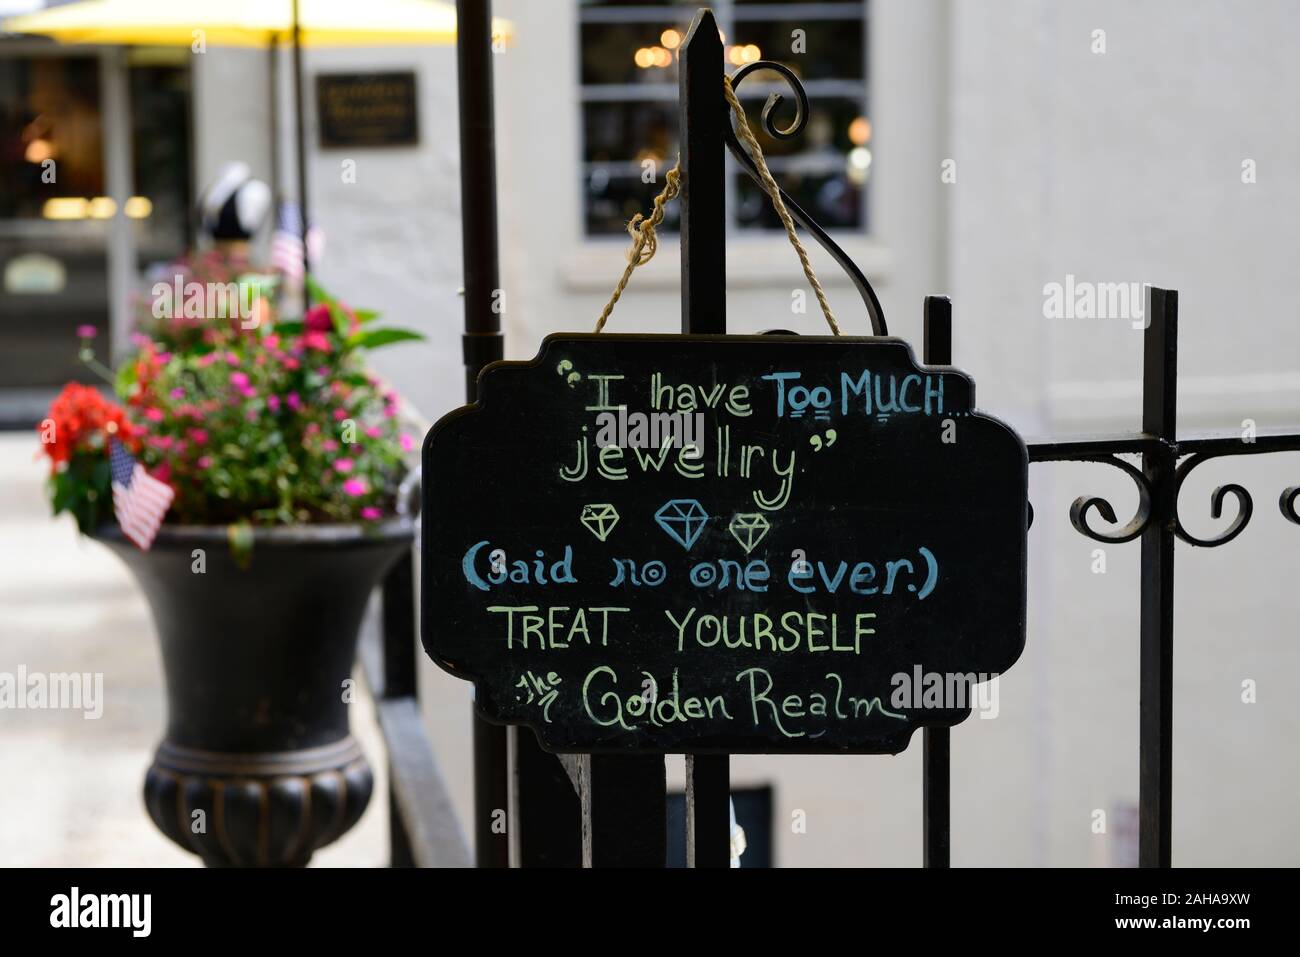 “I have Too MUCH...
jewellry.”
(said no one ever.)
TREAT YOURSELF
the Golden Realm
alamy
alamy
Image ID: 2AHA9XW
www.alamy.com